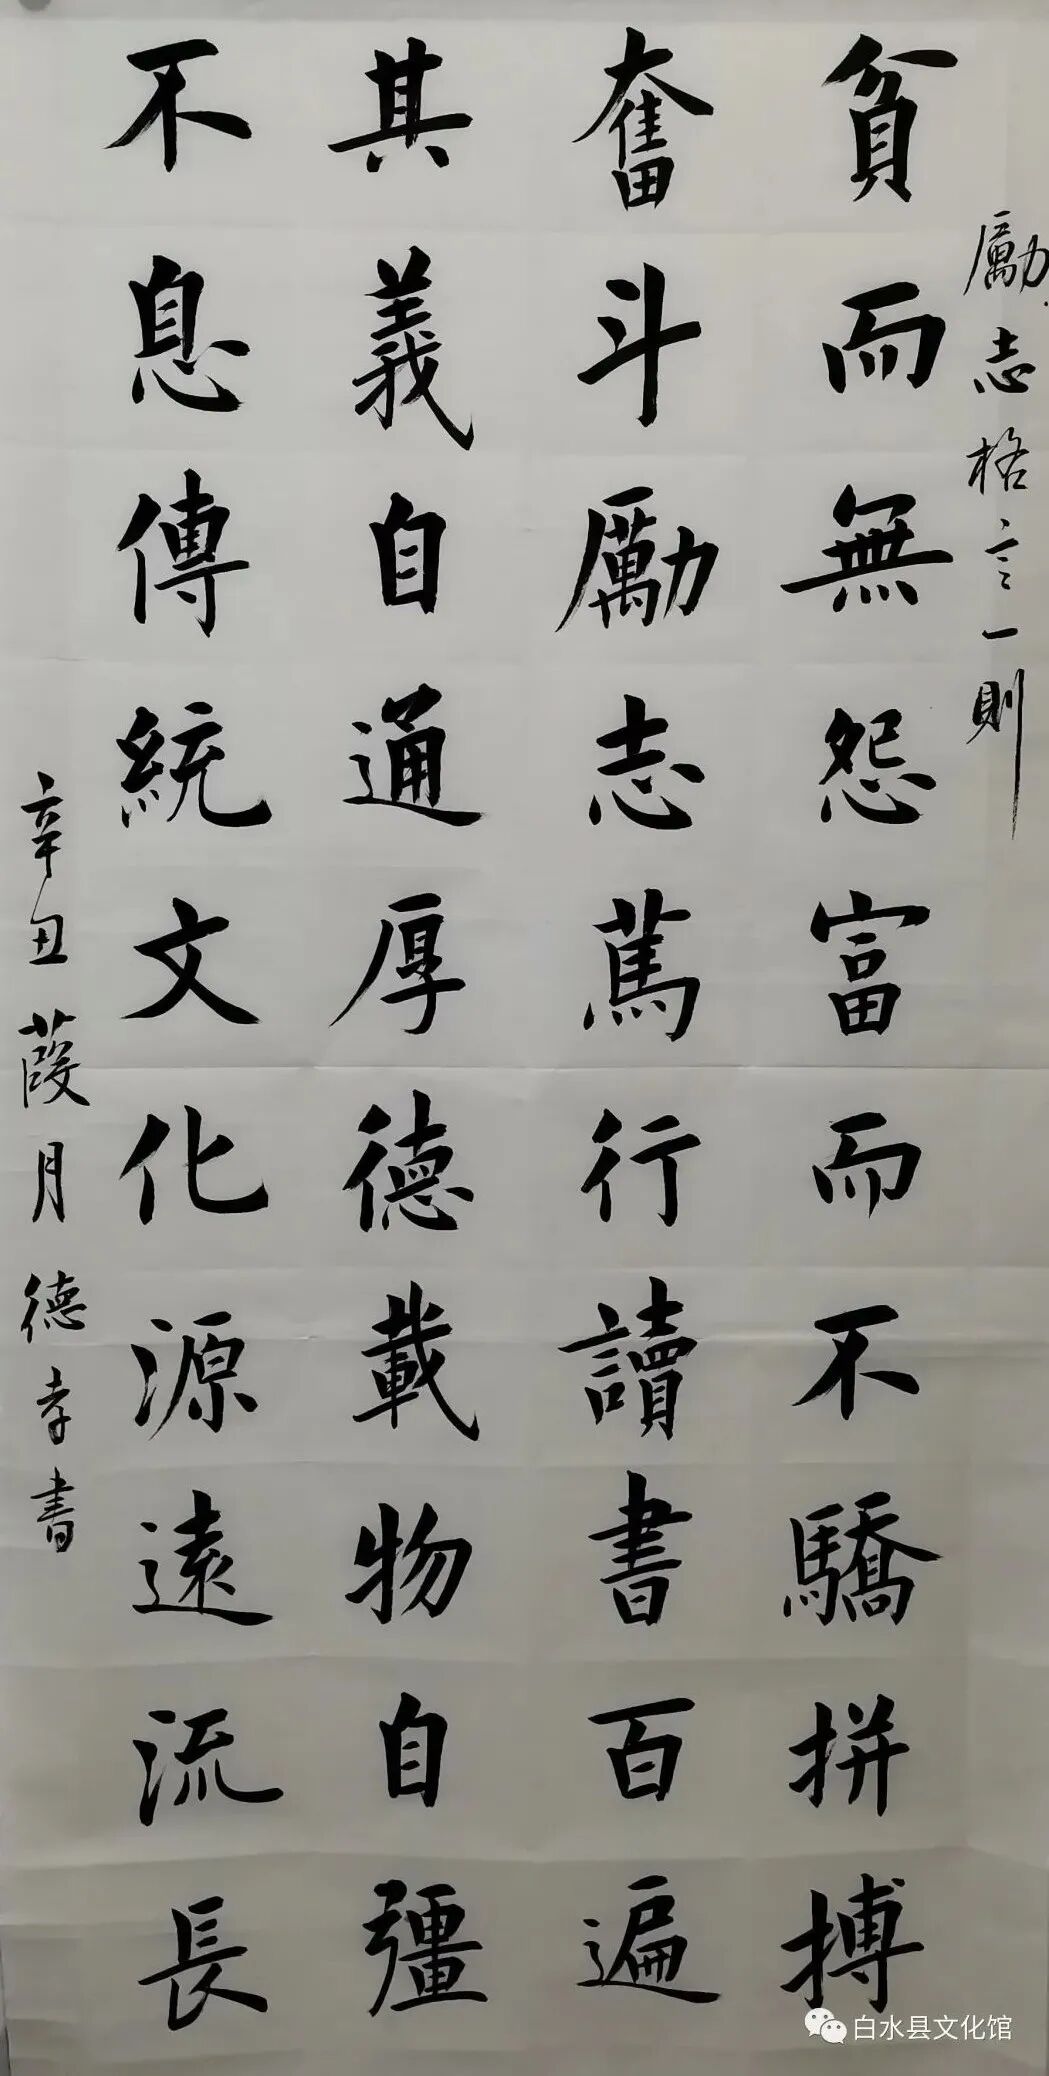 勵志格言一則
貧而無怨富而不驕拼搏
奮斗勵志篤行讀書百遍
其義自通厚德載物自彊
不息傳統文化源遠流長
辛丑葭月德孝書
白水县文化馆